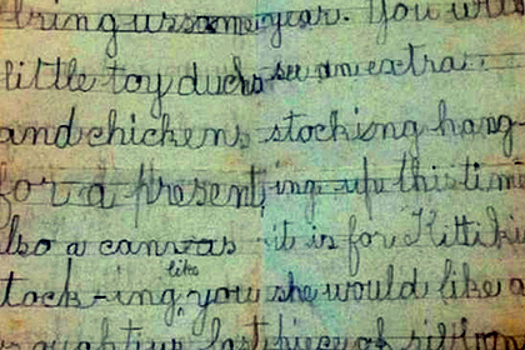 bring us some
little toy ducks
and chickens
for a present,
lso a canvas
tock-ing like you
last
year. You
see an extra
stocking hang-
ing up this time
it is for
she would like a
piece of ribbon